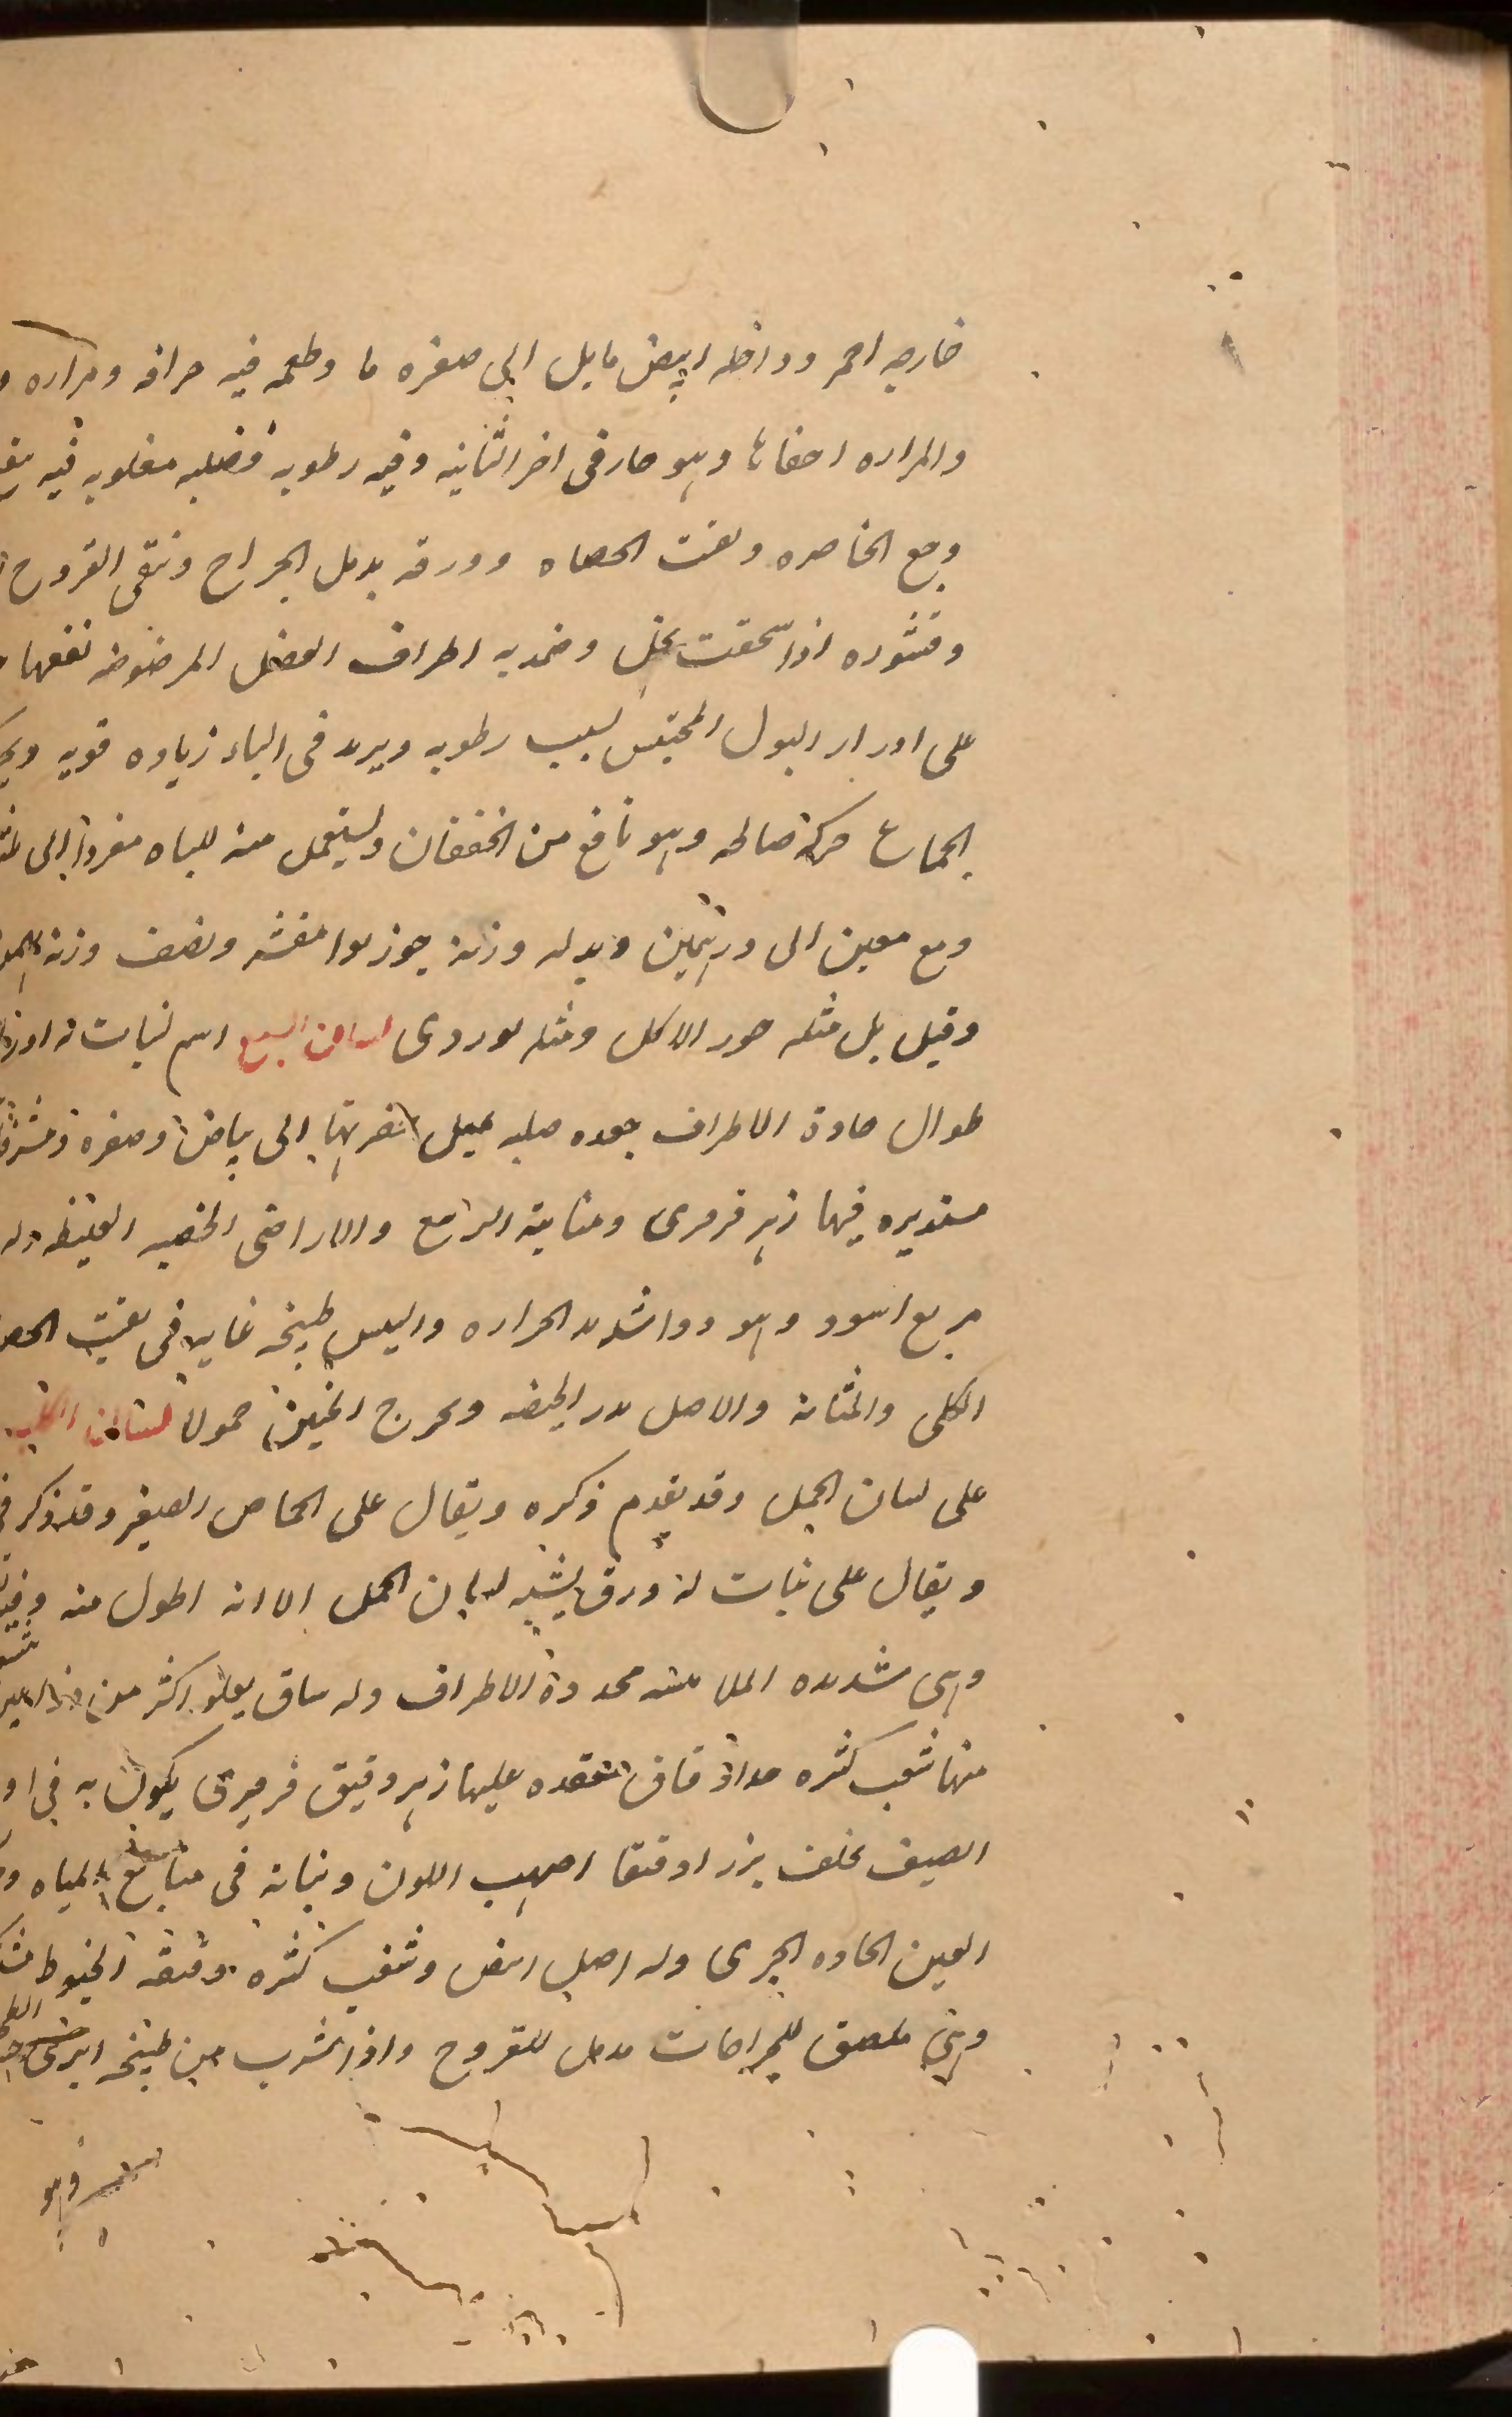 خارجه احمر وداخله ابيض مايل الى صفره ما وطعمه فيه حرافه ومراره
والمراره اخفاها وهو حار فى اخر الثانيه وفيه رطوبه فضليه مغلوبه فيه
وجع الخاصره وتفت الحصاه وورقه يدمل الجراح وينقى القروح
وقشوره اذا سحقت بخل وضمد به اطراف العضل المرضوضه نفعها
على ادرار البول المحتبس بسبب رطوبه ويزيد فى الباه زياده قويه
الجماع حركة صالحه وهو نافع من الخفقان ويستعمل منه للباه مفردا الى
ومع معين الى درهمين وبدله وزنه جوزبوا مقشر ونصف وزنه
وقيل بل مثله حور الاكل ومثله بوردى لسان السبع اسم لنبات له اوراق
طوال حادة الاطراف جعده صلبه يميل خضرتها الى بياض وصفره
مستديره فيها زهر فرفرى ومنابته الرامع والاراضى الخصبه الغليظه وله
مربع اسود وهو دوا شديد الحراره واليبس طبيخه غايه فى تفتيت الحصى
الكلى والمثانه والاصل يدر الحيضه ويخرج الجنين حمولا لسان الكلب
على لسان الحمل وقد تقدم ذكره ويقال على الحماض الصغير وقد ذكر
ويقال على نبات له ورق يشبه لسان الحمل الا انه اطول منه
وهى شديده الملاسه محدودة الاطراف وله ساق يعلو اكثر من ذراعين
منها شعب كثيره جدا دقاق منعقده عليها زهر دقيق فرفيرى يكون به فى
الصيف يخلف بزرا دقيقا اصهب اللون ونباته فى منابع المياه
العين الحاده الجرى وله اصل ابيض وشعب كثيره دقيقه الخيوط
وهى ملصق للجراحات مدمل للقروح واذا شرب من طبيخه ابرى